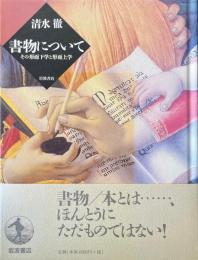 清水 徹
書物について
その形而下学と形而上学
岩波書店
書物/本とは……、
ほんとうに
ただものではない!
岩波書店